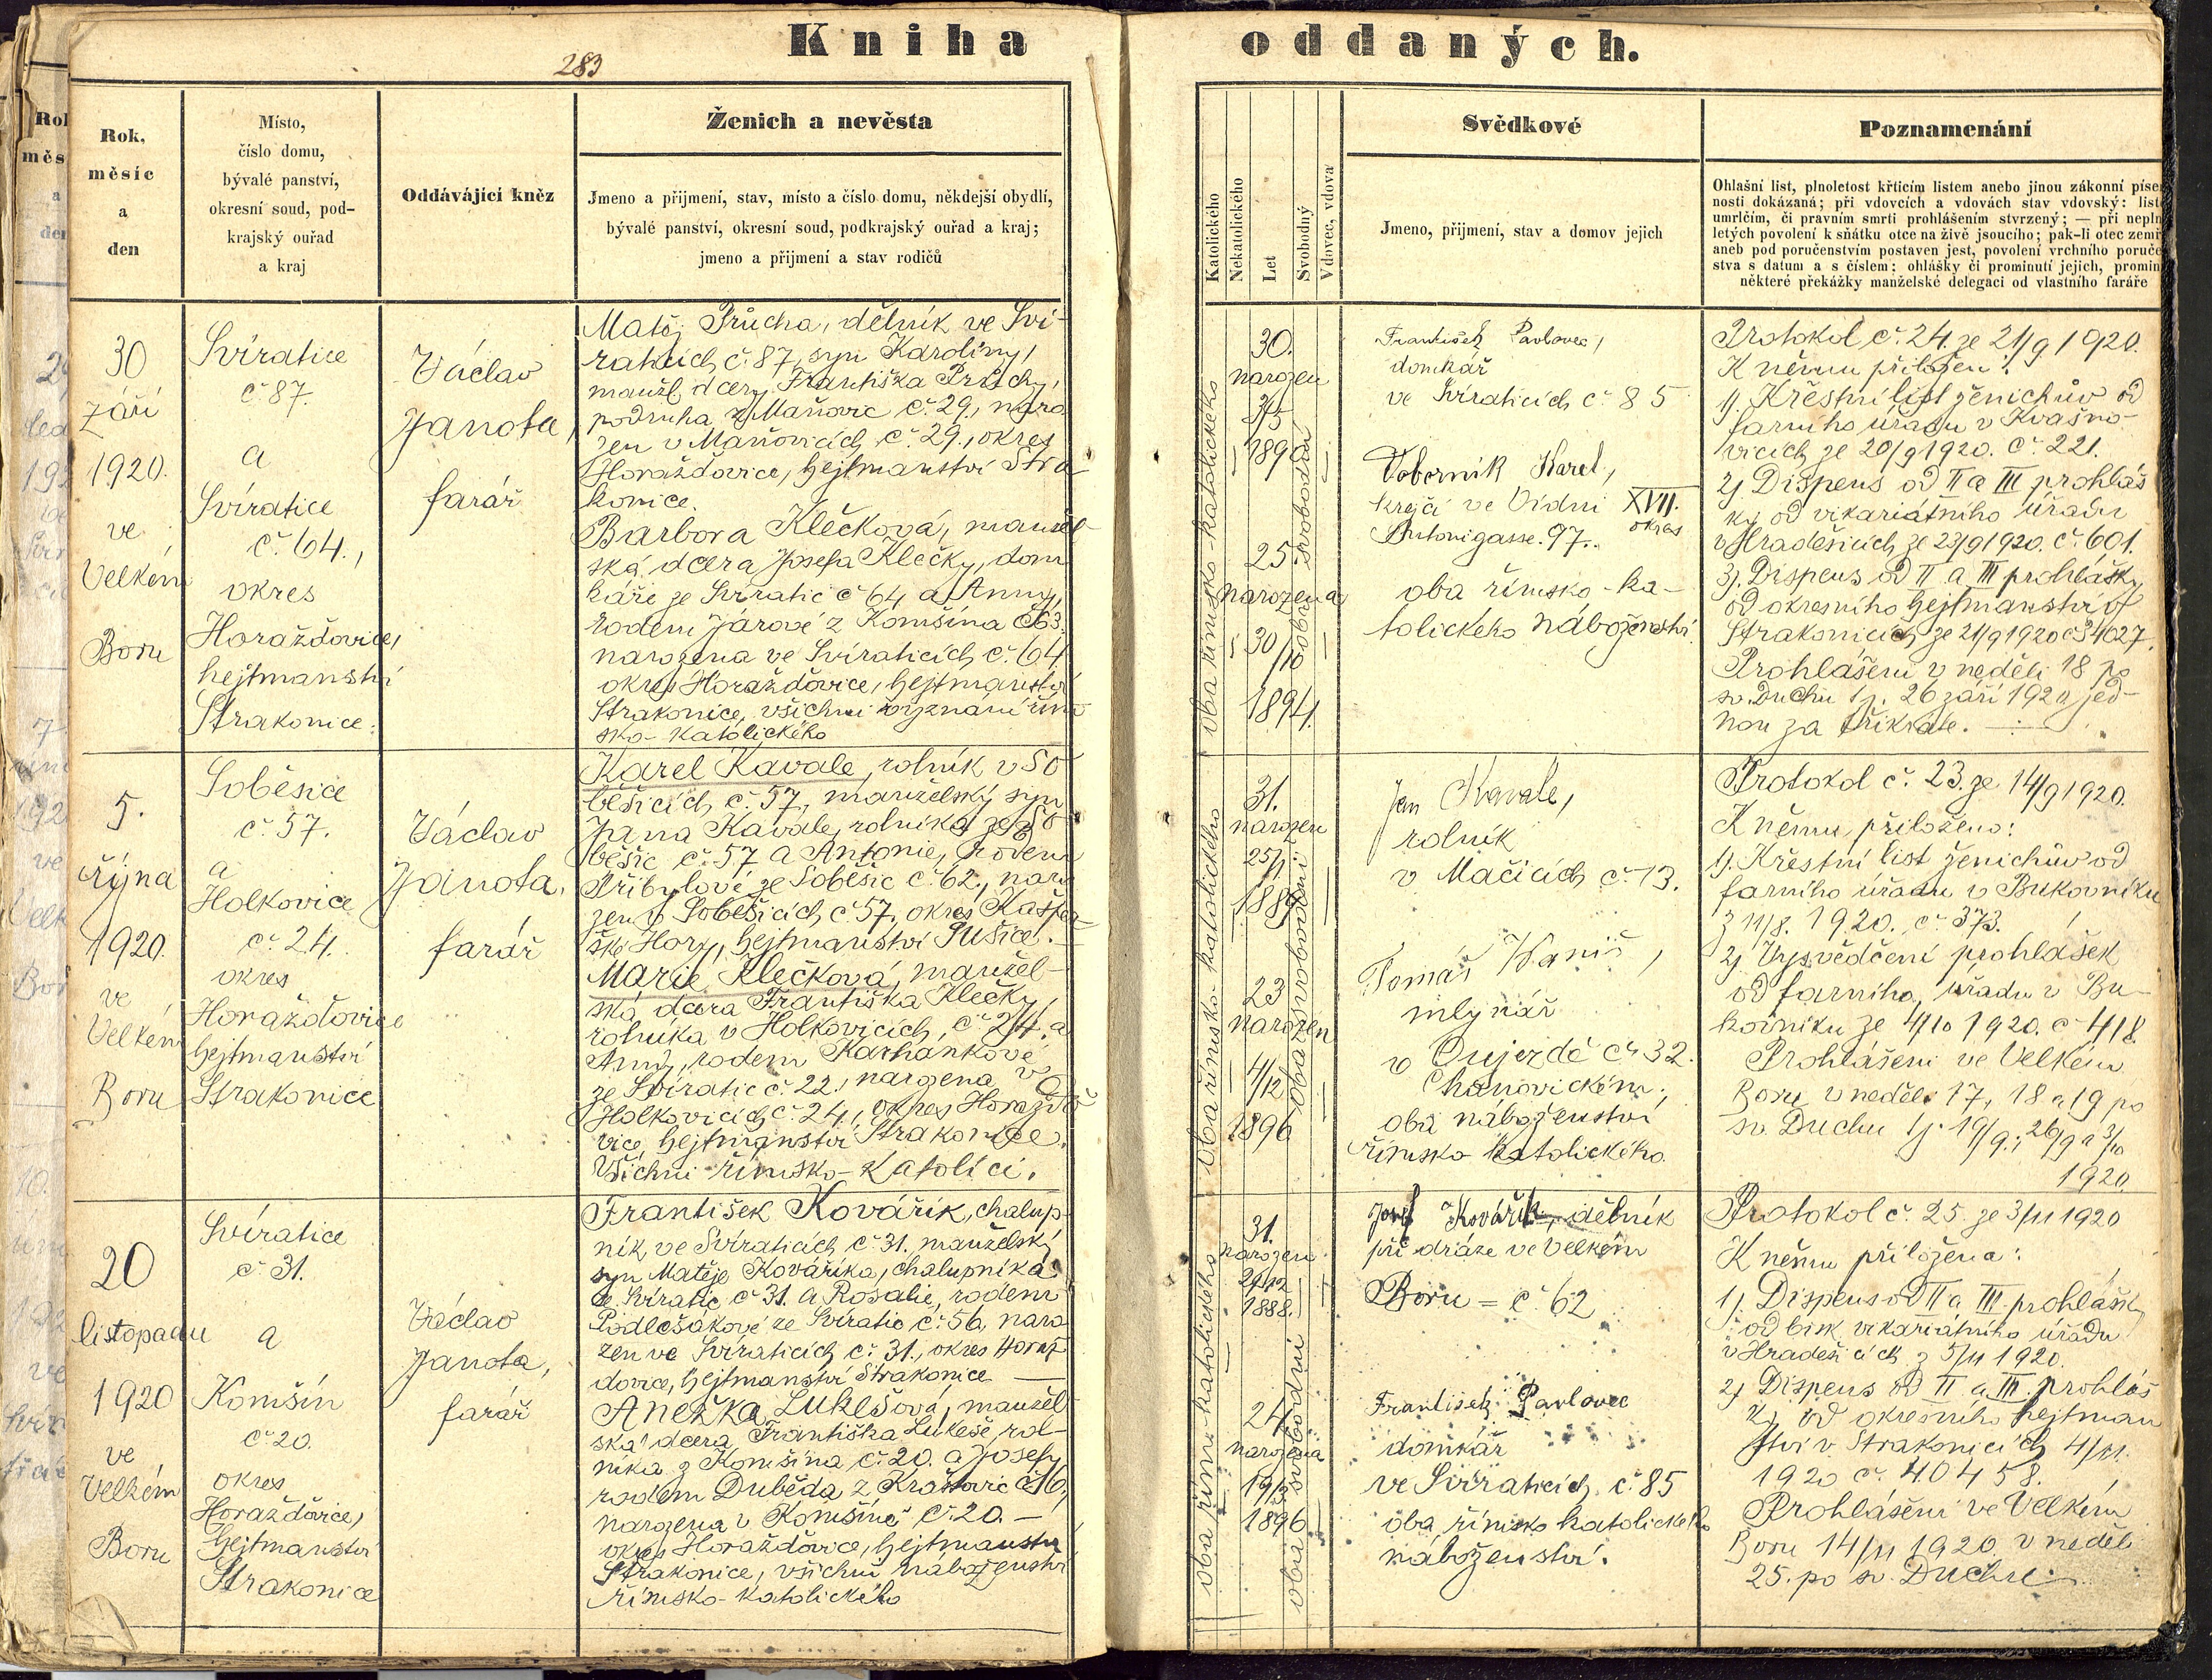 Kniha
oddaných.
283
Rok,
měsíc
a
den
Místo,
číslo domu,
bývalé panství,
okresní soud, pod-
krajský ouřad
a kraj
Oddávající kněz
Ženich a nevěsta
Jmeno a přijmení, stav, místo a číslo domu, někdejší obydlí,
bývalé panství, okresní soud, podkrajský ouřad a kraj;
jmeno a přijmení a stav rodičů
Katolického
Nekatolického
Let
Svobodný
Vdovec, vdova
Svědkové
Jmeno, přijmení, stav a domov jejich
Poznamenání
Ohlašní list, plnoletost křticím listem anebo jinou zákonní píse
nosti dokázaná; při vdovcích a vdovách stav vdovský: list
umrlčím, či právním smrti prohlášením stvrzený; — při nepln
letých povolení k sňátku otce na živě jsoucího; pak-li otec zemř
aneb pod poručenstvím postaven jest, povolení vrchního poruče
stva s datum a s číslem; ohlášky či prominutí jejich, promin
některé překážky manželské delegací od vlastního faráře
30
září
1920.
ve
Velkém
Boru
Svíratice
č 87.
a
Svíratice
č. 64.,
okres
Horažďovice,
hejtmanství
Strakonice.
Václav
Janota,
farář
Matěj Průcha, dělník ve Sví-
raticích č. 87, syn Karolíny,
manžl. dcery Františka Průchy,
podruha z Maňovic č. 29., naro
zen v Maňovicích č. 29., okres
Horažďovice, hejtmanství Stra
konice.
Barbora Klečková, manžel-
ská dcera Josefa Klečky, dom
káře ze Svíratic č 64 a Anny,
rodem Járové z Komšína č 63.
narozena ve Svíraticích č. 64
okres Horažďovice, hejtmanství
Strakonice, všichni vyznání řím
sko-katolického
oba římsko-katolického
30.
narozen
3/5
1890
25.
narozena
30/10
1894.
oba svobodní
František Pavlovec,
domkář
ve Svíraticích č. 85
Voborník Karel,
krejčí ve Vídni XVII.
okres
Antonigasse. 97.
oba římsko-ka-
tolického náboženství
Protokol č. 24. ze 21/9 1920.
K němu přiložen:
1). Křestní list ženichův od
farního úřadu v Kvášňo-
vicích ze 20/9 1920. č. 221.
2) Dispens od II a III prohláš
ky od vikariátního úřadu
v Hradešicích ze 23/9 1920. č. 601.
3). Dispens od II a III prohlášky
od okresního hejtmanství v
Strakonicích ze 21/9 1920 č 34027.
Prohlášeni v neděli 18 po
sv. Duchu t.j. 26 září 1920 jed-
nou za třikráte.
5.
října
1920.
ve
Velkém
Boru
Soběšice
č. 57.
a
Holkovice
č. 24.
okres
Horažďovice
hejtmanství
Strakonice
Václav
Janota.
farář
Karel Kavale, rolník v So
běšicích č. 57., manželský syn
Jana Kavale, rolníka ze So
běšic č. 57 a Antonie, rodem
Přibylové ze Soběšic č. 62., naro
zen v Soběšicích č. 57, okres Kašpe
ské Hory, hejtmanství Sušice.
Marie Klečková, manžel-
ská dcera Františka Klečky
rolníka v Holkovicích, č. 24. a
Anny, rodem Karhánkové
ze Svíratic č. 22., narozena v
Holkovicích č. 24., okres Horažďo
vice, hejtmanství Strakonice.
Všichni římsko-katolíci.
oba římsko-katolického
31.
narozen
25/1
1889
23
narozen
4/12
1896
oba svobodní
Jan Kavale,
rolník
v Mačicích č. 13.
Tomáš Waniš,
mlynář
v Oujezdě č. 32.
Chanovickém;
oba náboženství
římsko katolického.
Protokol č. 23. ze 14/9 1920.
K němu přiloženo:
1). Křestní list ženichův od
farního úřadu v Bukovníku
z 11/8. 1920. č. 373.
2) Vysvědčení prohlášek
od farního úřadu v Bu-
kovníku ze 4/10 1920. č 418
Prohlášeni ve Velkém
Boru v neděli 17, 18 a 19 po
sv. Duchu tj. 19/9.; 26/9 a 3/10
1920.
20
listopadu
1920
ve
Velkém
Boru
Svíratice
č. 31.
a
Komšín
č. 20.
okres
Horažďovice,
hejtmanství
Strakonice
Václav
Janota,
farář
František Kovářík, chalup
ník, ve Svíraticích č. 31. manželský
syn Matěje Kováříka, chalupníka
ze Svíratic č 31. a Rosalie, rodem
Podlešákové ze Svíratic č. 56, naro
zen ve Svíraticích č. 31., okres Horaž
dovice, hejtmanství Strakonice
Anežka Lukešová, manžel
ská dcera Františka Lukeše, rol-
níka z Komšína č. 20. a Josefy
rodem Duběda z
narozena v Komšíně č. 20. —
okres Horažďovice, hejtmanství
Strakonice, všichni náboženství
římsko-katolického
oba římsko-katolického
31.
narozen
24/12
1888.
24
narozena
1896
oba svobodní
Josef Kovářík, dělník
při dráze ve Velkém
Boru = č. 62
František Pavlovec
domkář
ve Svíraticích č. 85
oba římsko katolického
náboženství.
Protokol č. 25 ze 3/11 1920
K němu přiložena:
1). Dispens od II a III. prohlášky
od bisk. vikariátního úřadu
v Hradešicích z 5/11 1920.
2) Dispens od II a III. prohláš
ky od okresního hejtman
ství v Strakonicích 4/11.
1920 č. 40458.
Prohlášeni ve Velkém
Boru 14/11 1920 v neděli
25. po sv. Duchu.